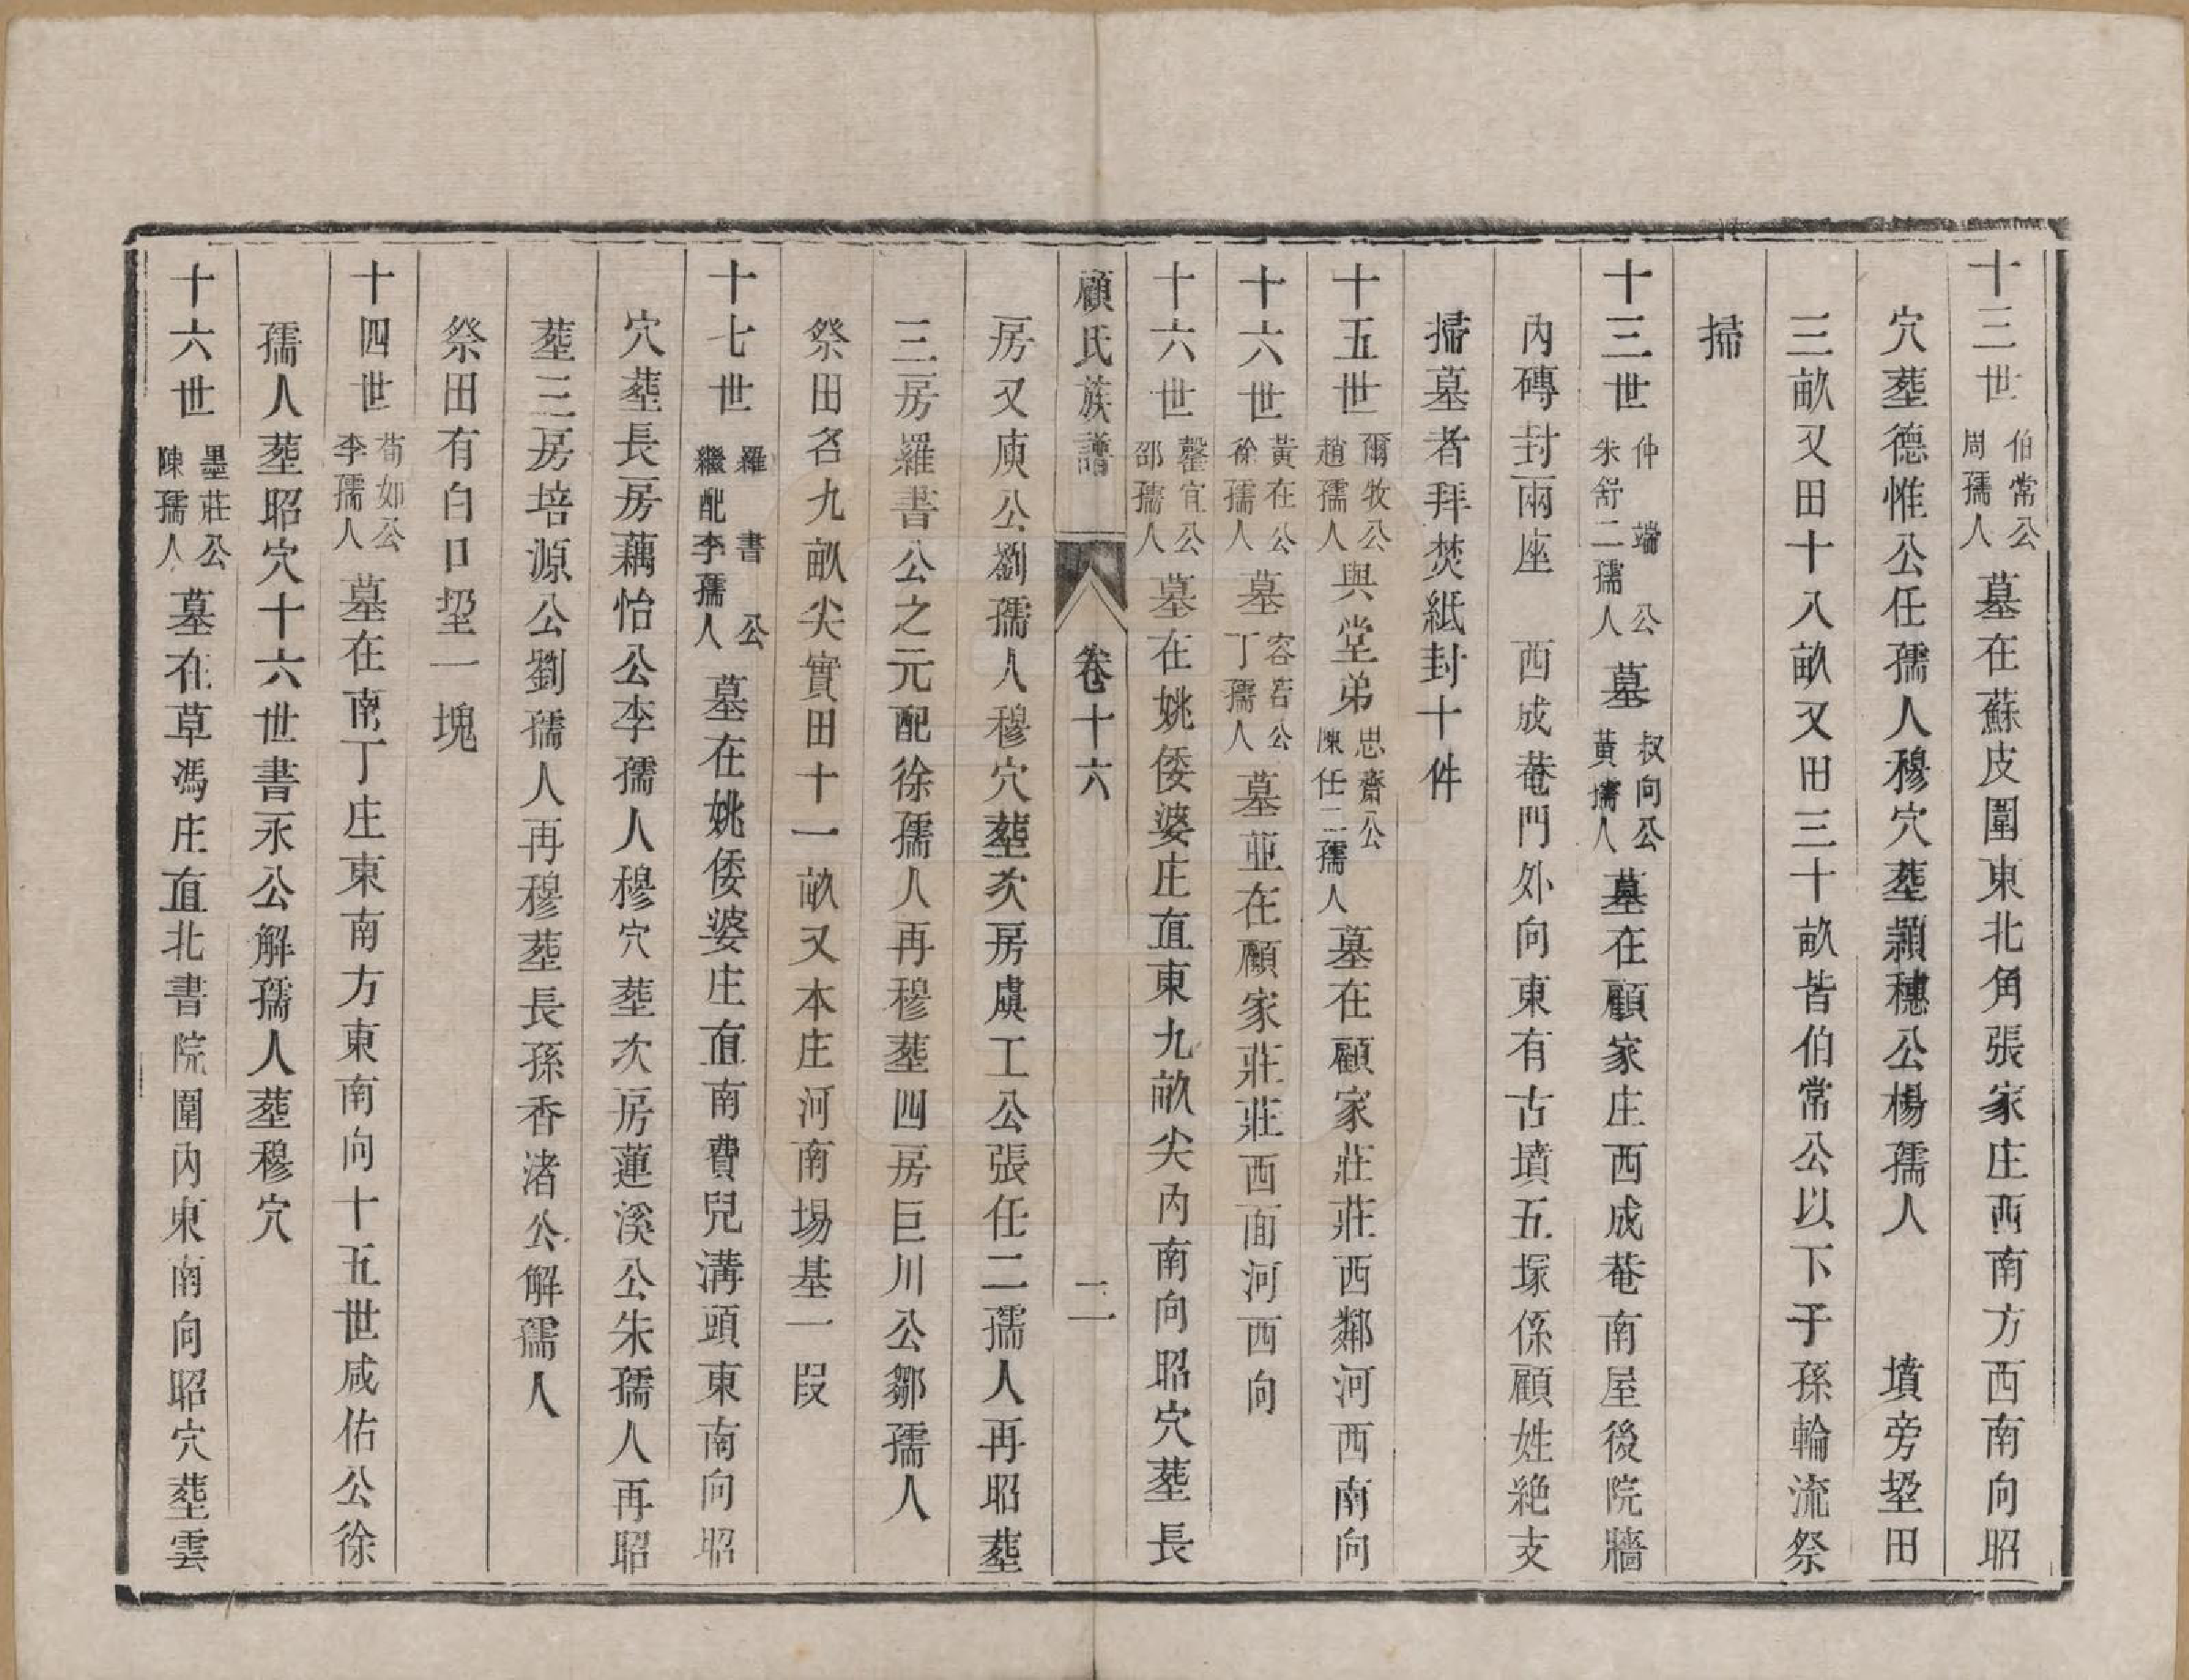 十三世伯常公周孺人墓在蘇皮圍東北角張家庄西南方西南向昭
穴塟德惟公任孺人穆穴塟穎穗公楊孺人　墳旁墾田
三畝又田十八畝又田三十畝皆伯常公以下子孫輪流祭
掃
十三世仲端公朱舒二孺人墓叔向公黃孺人墓在顧家庄西成菴南屋後院牆
內磚封兩座　西成菴門外向東有古墳五塚係顧姓絶支
掃墓者拜焚紙封十件
十五世爾牧公趙孺人與堂弟思齋公陳任二孺人墓在顧家莊莊西鄰河西南向
十六世黃在公徐孺人墓容若公丁孺人墓並在顧家莊莊西面河西向
十六世馨宜公邵孺人墓在姚倭婆庄直東九畝尖內南向昭穴塟長
顧氏族譜　卷十六　二
房又庾公劉孺人穆穴塟次房虞工公張任二孺人再昭塟
三房羅書公之元配徐孺人再穆塟四房巨川公鄒孺人
祭田名九畝尖實田十一畝又本庄河南場基一段
十七世羅書公繼配李孺人墓在姚倭婆庄直南費兒溝頭東南向昭
穴塟長房藕怡公李孺人穆穴塟次房蓮溪公朱孺人再昭
塟三房培源公劉孺人再穆塟長孫香渚公解孺人
祭田有白口垡一塊
十四世荀如公李孺人墓在南丁庄東南方東南向十五世咸佑公徐
孺人塟昭穴十六世書永公解孺人塟穆穴
十六世墨莊公陳孺人墓在草馮庄直北書院圍內東南向昭穴塟雲